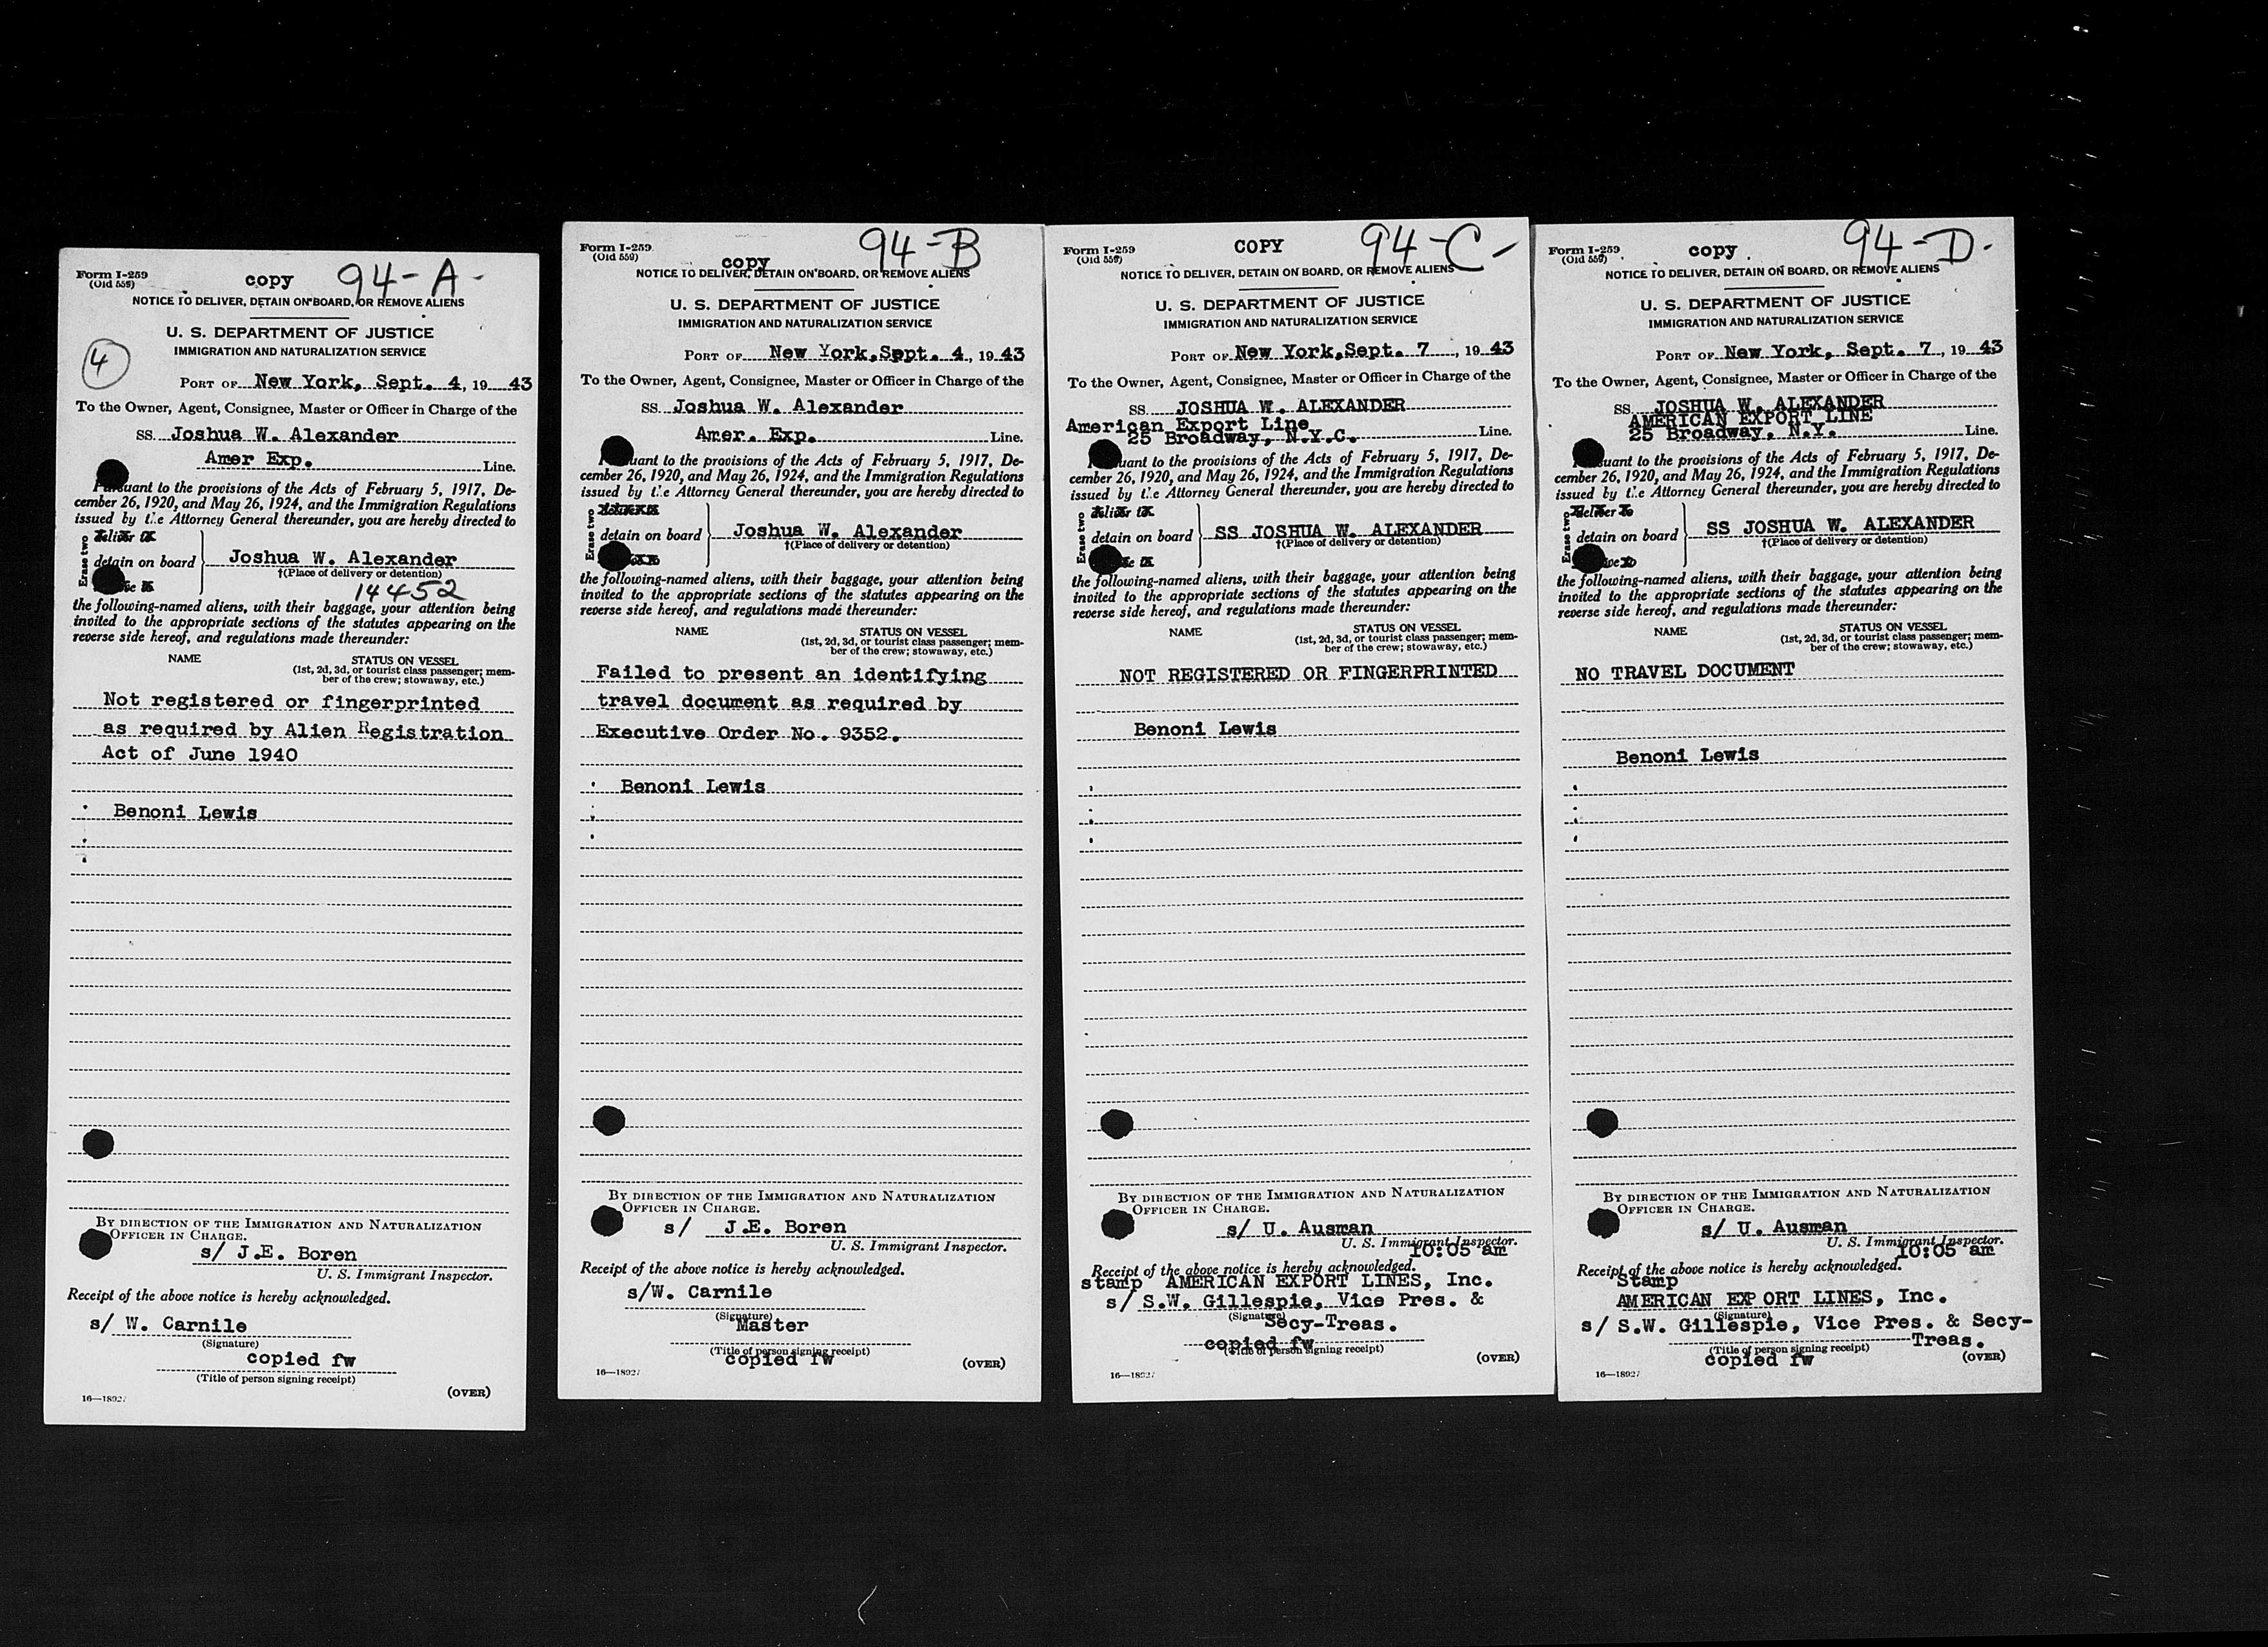 Form I-259
(Old 559)
copy 94-A-
NOTICE TO DELIVER, DETAIN ON BOARD, OR REMOVE ALIENS
U. S. DEPARTMENT OF JUSTICE
IMMIGRATION AND NATURALIZATION SERVICE
4
PORT OF New York, Sept. 4, 1943
To the Owner, Agent, Consignee, Master or Officer in Charge of the
SS. Joshua W. Alexander
Amer Exp. Line.
Pursuant to the provisions of the Acts of February 5, 1917, De-
cember 26, 1920, and May 26, 1924, and the Immigration Regulations
issued by the Attorney General thereunder, you are hereby directed to
Erase two
detain on board Joshua W. Alexander
†(Place of delivery or detention)
14452
the following-named aliens, with their baggage, your attention being
invited to the appropriate sections of the statutes appearing on the
reverse side hereof, and regulations made thereunder:
NAME STATUS ON VESSEL
(1st, 2d, 3d, or tourist class passenger; mem-
ber of the crew; stowaway, etc.)
Not registered or fingerprinted
as required by Alien Registration
Act of June 1940
Benoni Lewis
BY DIRECTION OF THE IMMIGRATION AND NATURALIZATION
OFFICER IN CHARGE.
s/ J.E. Boren
U. S. Immigrant Inspector.
Receipt of the above notice is hereby acknowledged.
s/ W. Carnile
(Signature)
copied fw
(Title of person signing receipt)
16—18927
(OVER)
Form I-259
(Old 559)
copy 94-B
NOTICE TO DELIVER, DETAIN ON BOARD, OR REMOVE ALIENS
U. S. DEPARTMENT OF JUSTICE
IMMIGRATION AND NATURALIZATION SERVICE
PORT OF New York, Sept. 4, 1943
To the Owner, Agent, Consignee, Master or Officer in Charge of the
SS. Joshua W. Alexander
Amer. Exp. Line.
uant to the provisions of the Acts of February 5, 1917, De-
cember 26, 1920, and May 26, 1924, and the Immigration Regulations
issued by the Attorney General thereunder, you are hereby directed to
Erase two
detain on board Joshua W. Alexander
†(Place of delivery or detention)
the following-named aliens, with their baggage, your attention being
invited to the appropriate sections of the statutes appearing on the
reverse side hereof, and regulations made thereunder:
NAME STATUS ON VESSEL
(1st, 2d, 3d, or tourist class passenger; mem-
ber of the crew; stowaway, etc.)
Failed to present an identifying
travel document as required by
Executive Order No. 9352.
Benoni Lewis
BY DIRECTION OF THE IMMIGRATION AND NATURALIZATION
OFFICER IN CHARGE.
s/ J.E. Boren
U. S. Immigrant Inspector.
Receipt of the above notice is hereby acknowledged.
s/W. Carnile
(Signature)
Master
(Title of person signing receipt)
copied fw
16—18927
(OVER)
Form I-259
(Old 559)
COPY 94-C-
NOTICE TO DELIVER, DETAIN ON BOARD, OR REMOVE ALIENS
U. S. DEPARTMENT OF JUSTICE
IMMIGRATION AND NATURALIZATION SERVICE
PORT OF New York, Sept. 7, 1943
To the Owner, Agent, Consignee, Master or Officer in Charge of the
SS. JOSHUA W. ALEXANDER
American Export Line
25 Broadway, N.Y.C. Line.
uant to the provisions of the Acts of February 5, 1917, De-
cember 26, 1920, and May 26, 1924, and the Immigration Regulations
issued by the Attorney General thereunder, you are hereby directed to
Erase two
detain on board SS JOSHUA W. ALEXANDER
†(Place of delivery or detention)
the following-named aliens, with their baggage, your attention being
invited to the appropriate sections of the statutes appearing on the
reverse side hereof, and regulations made thereunder:
NAME STATUS ON VESSEL
(1st, 2d, 3d, or tourist class passenger; mem-
ber of the crew; stowaway, etc.)
NOT REGISTERED OR FINGERPRINTED
Benoni Lewis
BY DIRECTION OF THE IMMIGRATION AND NATURALIZATION
OFFICER IN CHARGE.
s/ U. Ausman
U. S. Immigrant Inspector.
10:05 am
Receipt of the above notice is hereby acknowledged.
stamp AMERICAN EXPORT LINES, Inc.
s/ S.W. Gillespie, Vice Pres. &
(Signature)
Secy-Treas.
copied fw
(Title of person signing receipt)
16—18927
(OVER)
Form I-259
(Old 559)
copy 94-D-
NOTICE TO DELIVER, DETAIN ON BOARD, OR REMOVE ALIENS
U. S. DEPARTMENT OF JUSTICE
IMMIGRATION AND NATURALIZATION SERVICE
PORT OF New York, Sept. 7, 1943
To the Owner, Agent, Consignee, Master or Officer in Charge of the
SS. JOSHUA W. ALEXANDER
AMERICAN EXPORT LINE
25 Broadway, N.Y. Line.
uant to the provisions of the Acts of February 5, 1917, De-
cember 26, 1920, and May 26, 1924, and the Immigration Regulations
issued by the Attorney General thereunder, you are hereby directed to
Erase two
detain on board SS JOSHUA W. ALEXANDER
†(Place of delivery or detention)
the following-named aliens, with their baggage, your attention being
invited to the appropriate sections of the statutes appearing on the
reverse side hereof, and regulations made thereunder:
NAME STATUS ON VESSEL
(1st, 2d, 3d, or tourist class passenger; mem-
ber of the crew; stowaway, etc.)
NO TRAVEL DOCUMENT
Benoni Lewis
BY DIRECTION OF THE IMMIGRATION AND NATURALIZATION
OFFICER IN CHARGE.
s/ U. Ausman
U. S. Immigrant Inspector.
10:05 am
Receipt of the above notice is hereby acknowledged.
Stamp
AMERICAN EXPORT LINES, Inc.
(Signature)
s/ S.W. Gillespie, Vice Pres. & Secy-
Treas.
(Title of person signing receipt)
copied fw
16—18927
(OVER)